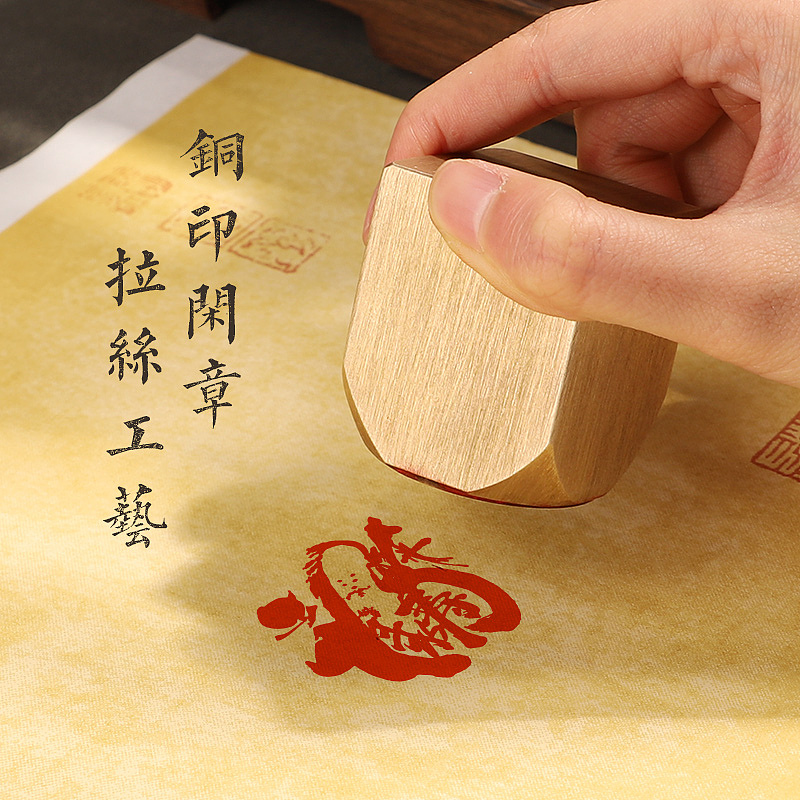 銅印閑章
拉絲工藝